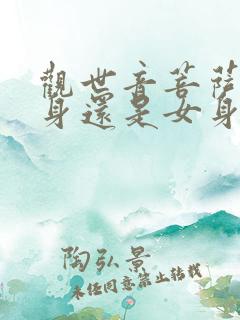 觀世音菩薩
身還是女身
陶弘景
未經同意禁止轉載